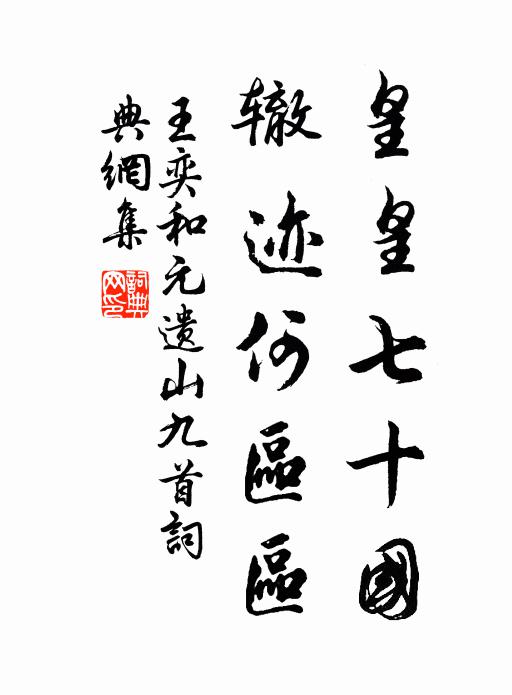 皇皇七十國
辙迹何區區
王奕和元遗山九首詞
典網集
詞典网印